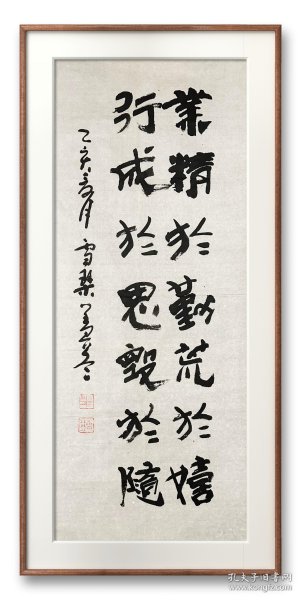 業精於勤荒於嬉
行成於思毀於隨
乙亥
月雪樵
孔夫子旧书网